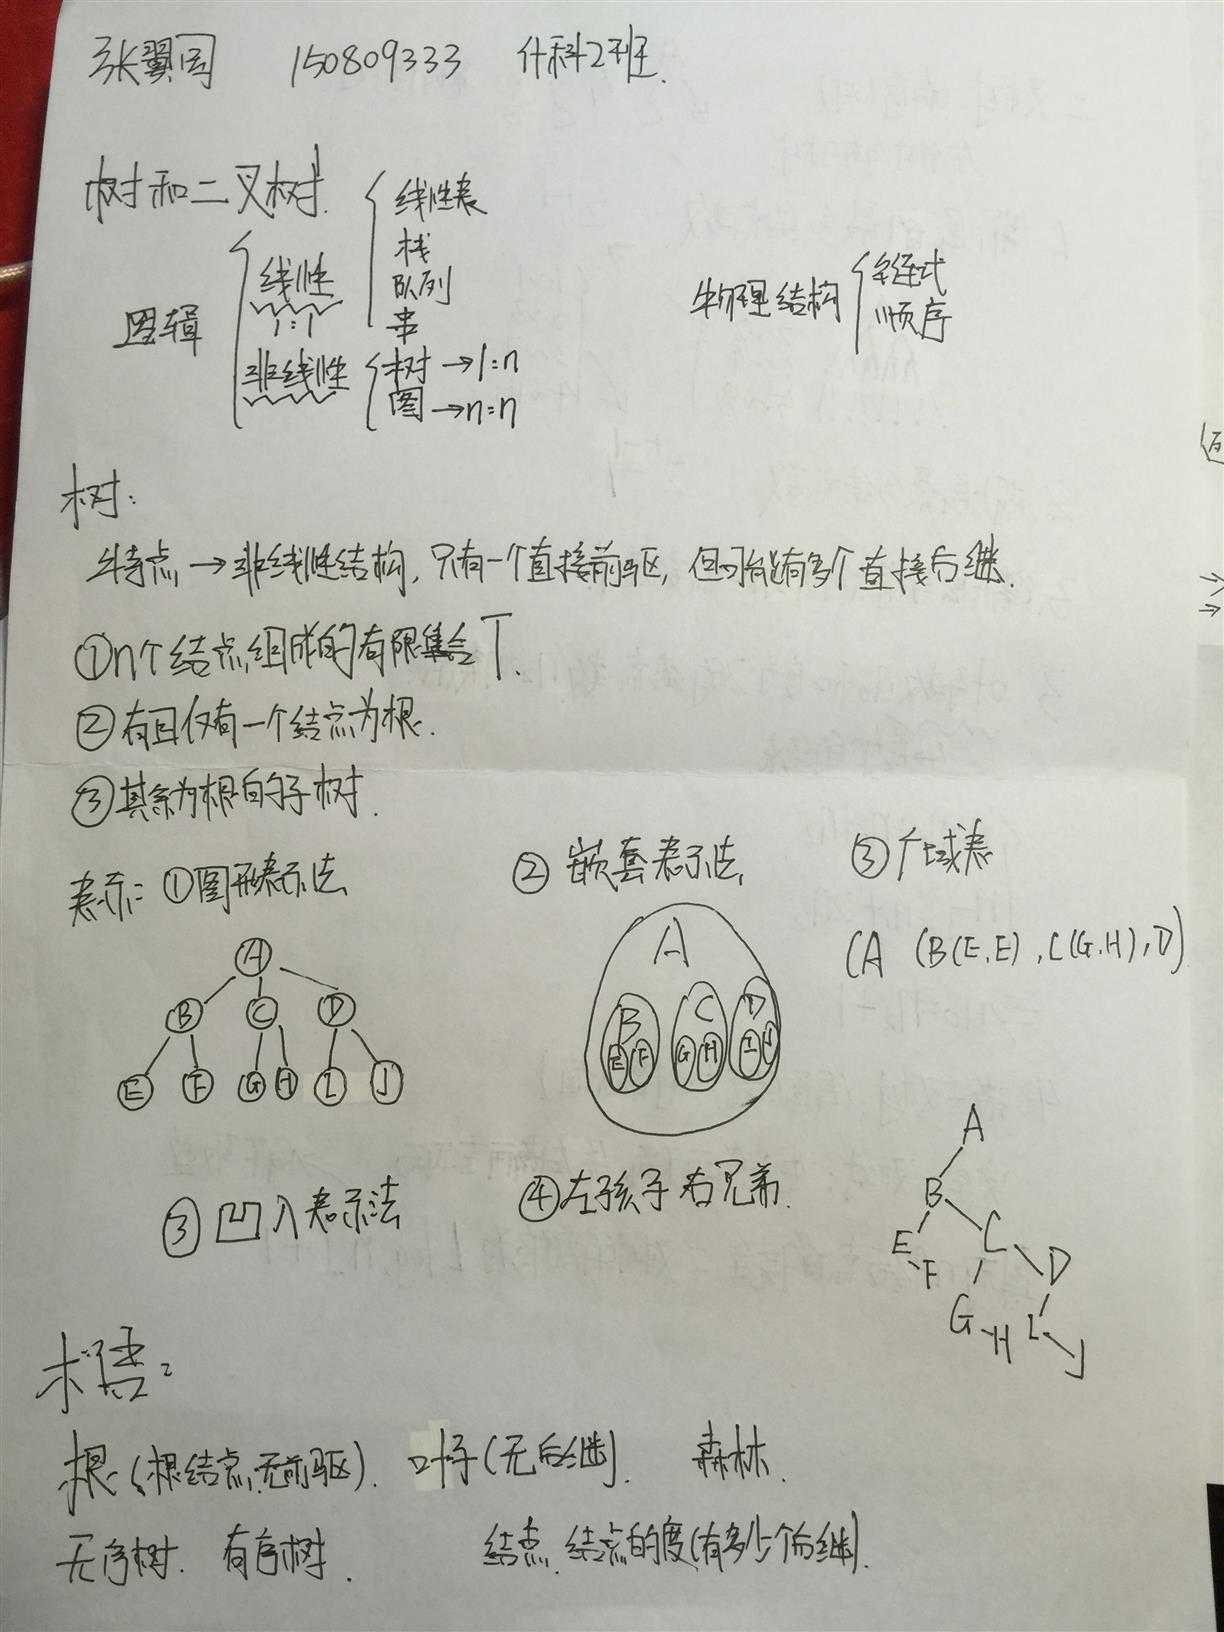 张翼闯 150809333 计科2班.
树和二叉树.
逻辑
线性
1:1
线性表
栈
队列
串
非线性
树→1:n
图→n:n
物理结构
链式
顺序
树:
特点→非线性结构,只有一个直接前驱,但可能有多个直接后继.
①n个结点组成的有限集合T.
②有且仅有一个结点为根.
③其余为根的子树.
表示: ①图形表示法 ②嵌套表示法 ③广域表
(A (B(E,E),C(G,H),D)
A
B C D
E F G H I J
A
B C D
E F G H I J
③凹入表示法 ④左孩子右兄弟.
A
B
E C
F D
G H I J
术语:
根(根结点,无前驱). 叶子(无后继). 森林.
无序树. 有序树. 结点. 结点的度(有多少个后继).